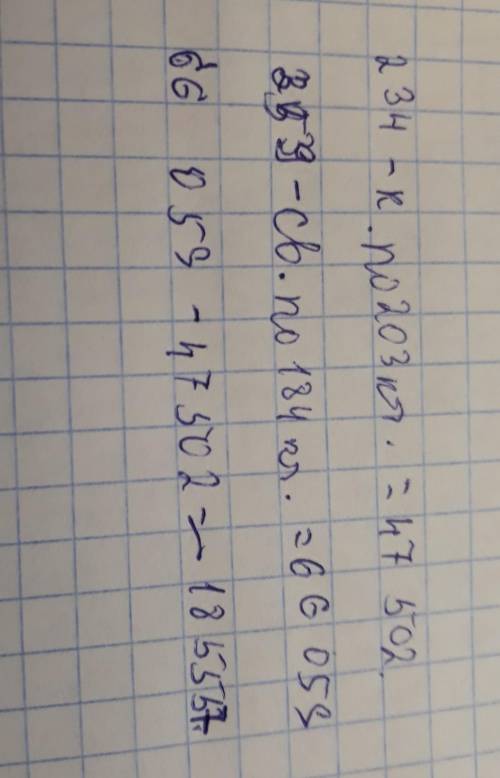 234 - к. по 203 кг. = 47 502.
359 - св. по 184 кг. = 66 059
66 059 - 47 502 = 18 557.